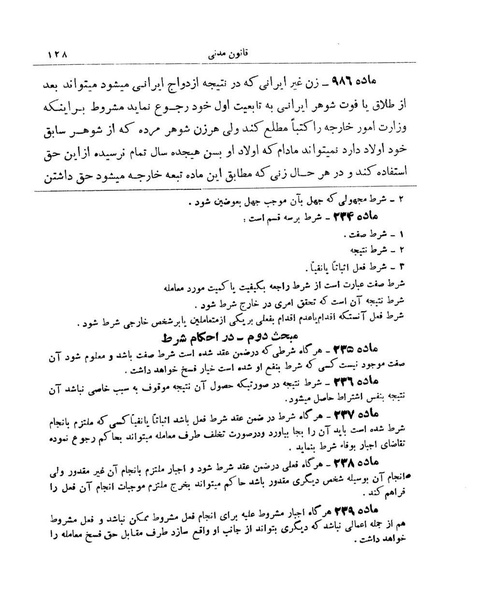 قانون مدنی ۱۲۸
ماده ۹۸۶ ـ زن غیر ایرانی که در نتیجه ازدواج ایرانی میشود میتواند بعد
از طلاق یا فوت شوهر ایرانی به تابعیت اول خود رجوع نماید مشروط براینکه
وزارت امور خارجه را کتباً مطلع کند ولی هر زن شوهر مرده که از شوهر سابق
خود اولاد دارد نمیتواند مادام که اولاد او بسن هیجده سال تمام نرسیده از این حق
استفاده کند و در هر حال زنی که مطابق این ماده تبعه خارجه میشود حق داشتن
۲ ـ شرط مجهولی که جهل بآن موجب جهل بعوضین شود .
ماده ۲۳۴ ـ شرط برسه قسم است :
۱ ـ شرط صفت .
۲ ـ شرط نتیجه
۳ ـ شرط فعل اثباتاً یا نفیاً .
شرط صفت عبارت است از شرط راجعه بکیفیت یا کمیت مورد معامله
شرط نتیجه آن است که تحقق امری در خارج شرط شود .
شرط فعل آنستکه اقدام یا عدم اقدام بفعلی بر یکی از متعاملین یا بر شخص خارجی شرط شود .
مبحث دوم ـ در احکام شرط
ماده ۲۳۵ ـ هر گاه شرطی که در ضمن عقد شده است شرط صفت باشد و معلوم شود آن
صفت موجود نیست کسی که شرط بنفع او شده است خیار فسخ خواهد داشت .
ماده ۲۳۶ ـ شرط نتیجه در صورتیکه حصول آن نتیجه موقوف به سبب خاصی نباشد آن
نتیجه بنفس اشتراط حاصل میشود.
ماده ۲۳۷ ـ هرگاه شرط در ضمن عقد شرط فعل باشد اثباتاً یا نفیاً کسی که ملتزم بانجام
شرط شده است باید آن را بجا بیاورد و در صورت تخلف طرف معامله میتواند بحاکم رجوع نموده
تقاضای اجبار بوفاء شرط بنماید .
ماده ۲۳۸ ـ هرگاه فعلی در ضمن عقد شرط شود و اجبار ملتزم بانجام آن غیر مقدور ولی
انجام آن بوسیله شخص دیگری مقدور باشد حاکم میتواند بخرج ملتزم موجبات انجام آن فعل را
فراهم کند .
ماده ۲۳۹ هرگاه اجبار مشروط علیه برای انجام فعل مشروط ممکن نباشد و فعل مشروط
هم از جمله اعمالی نباشد که دیگری بتواند از جانب او واقع سازد طرف مقابل حق فسخ معامله را
خواهد داشت .